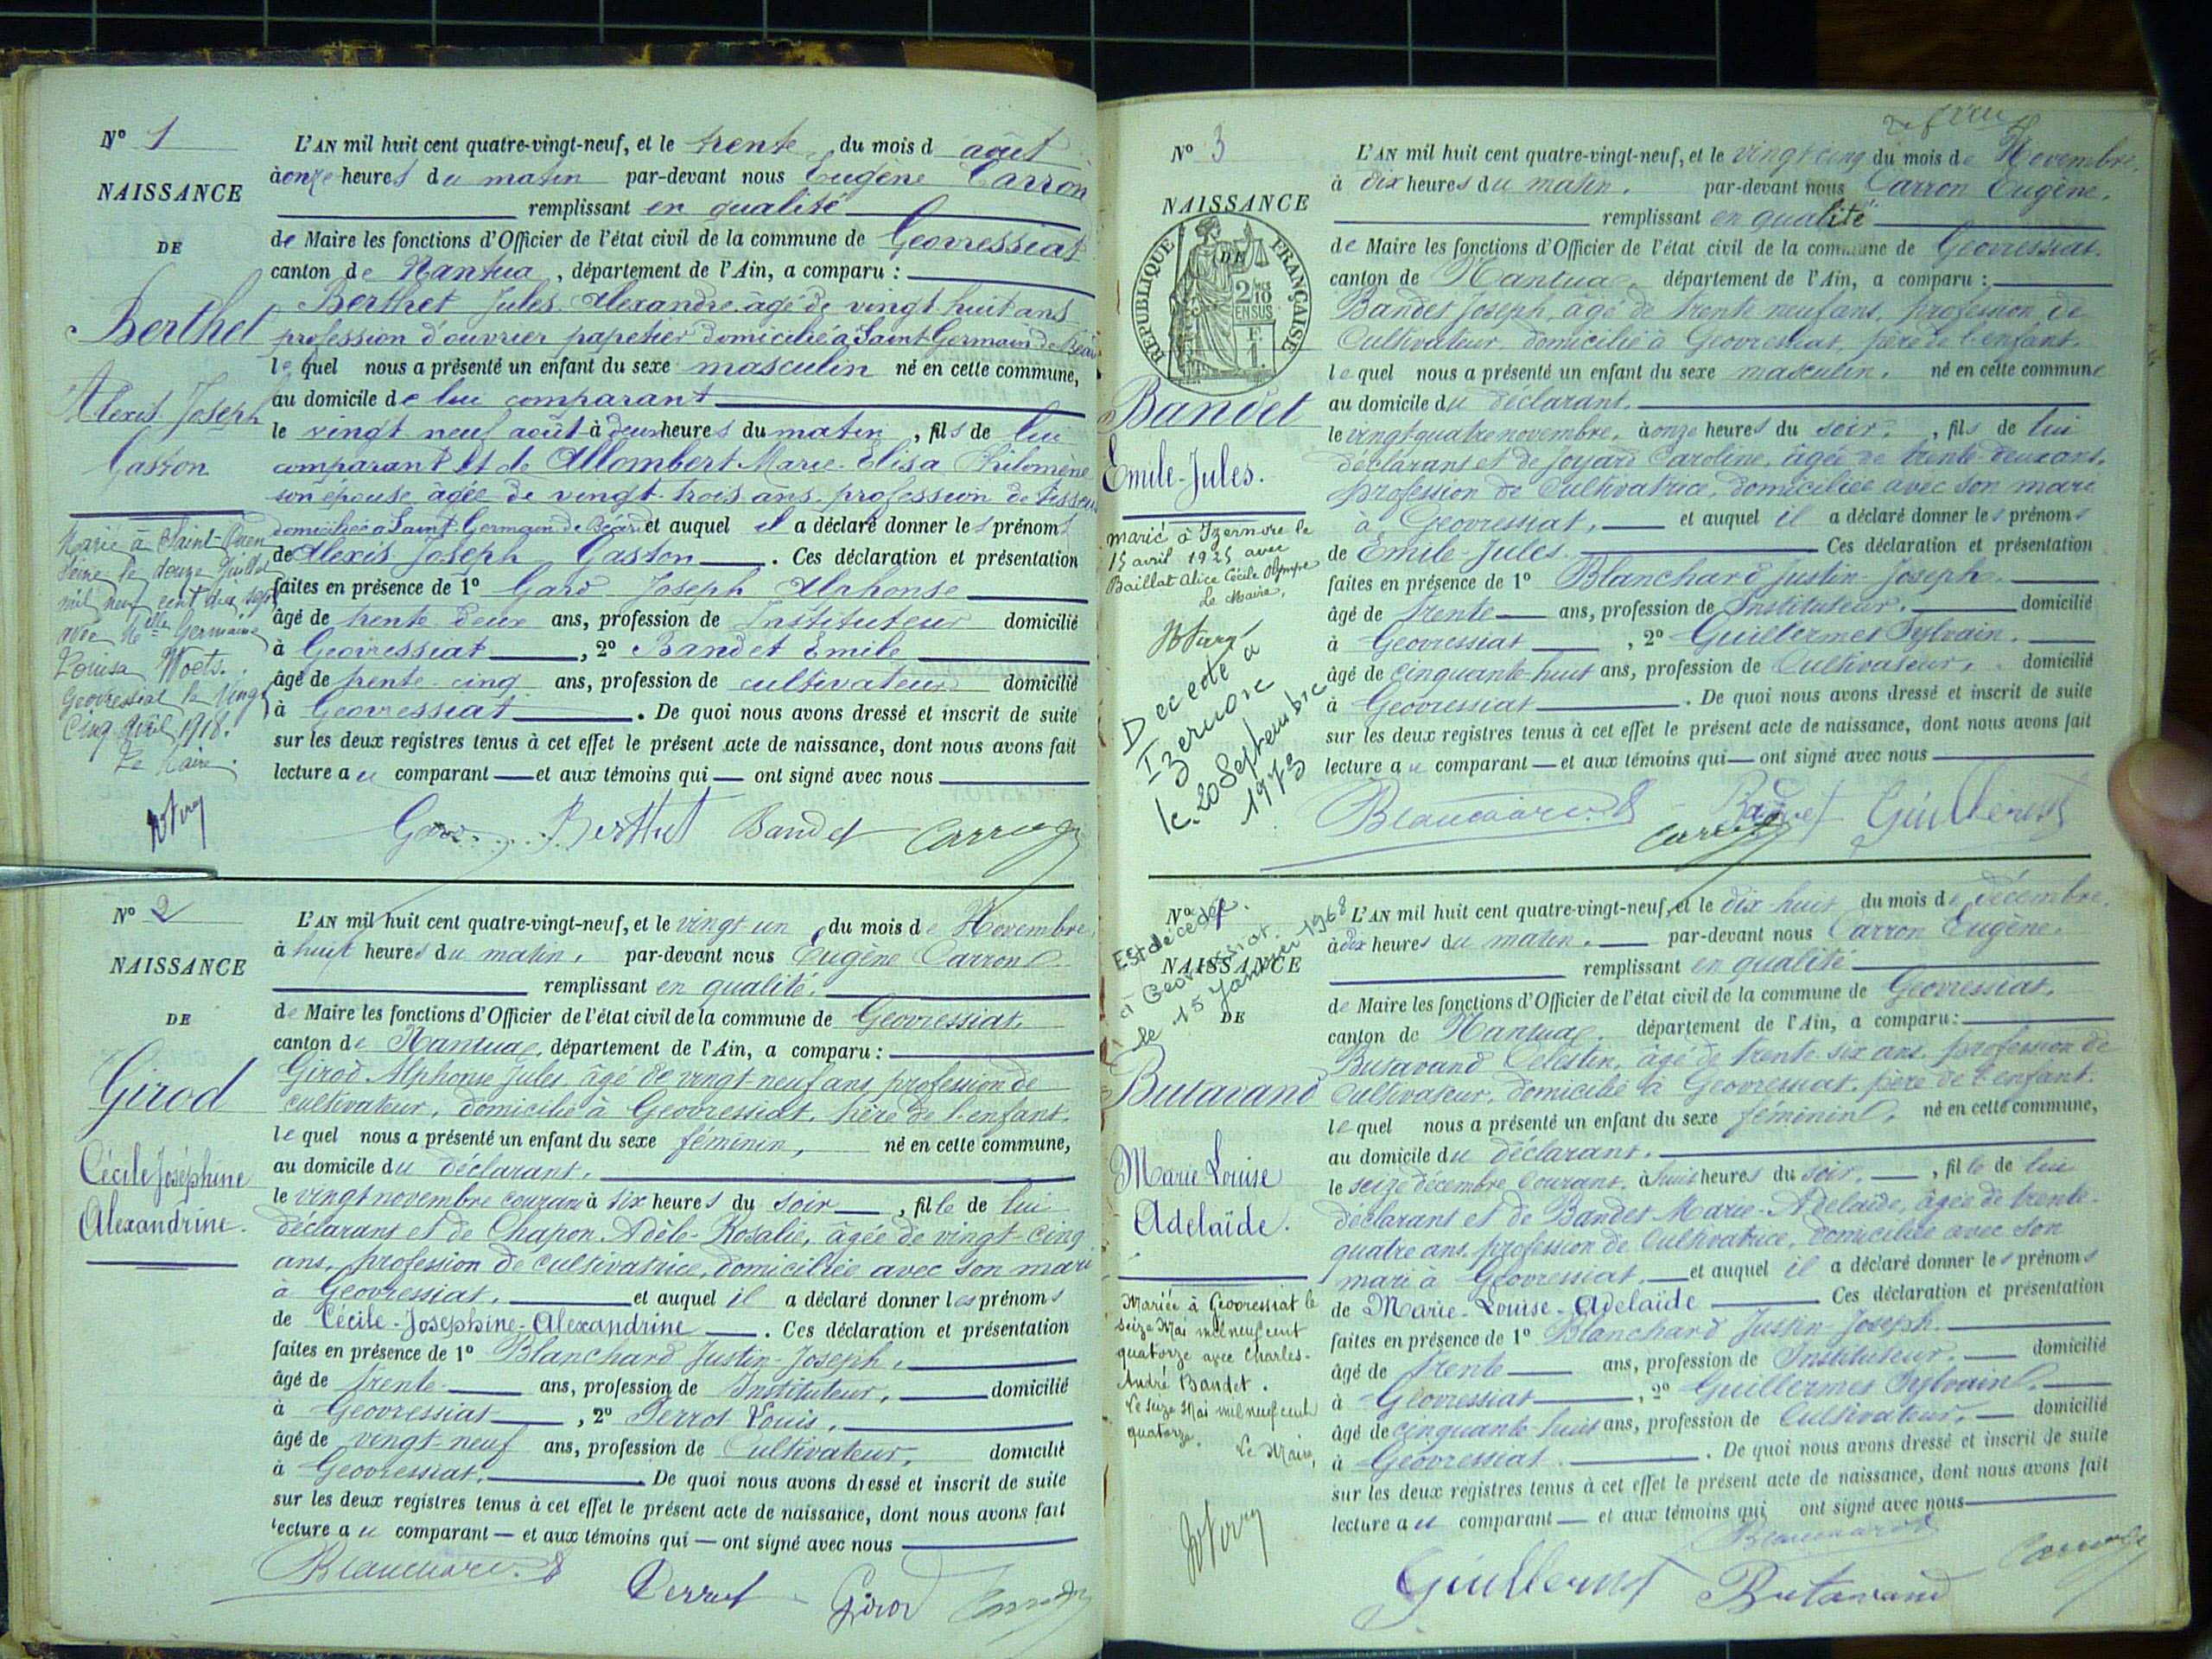 N° 1
NAISSANCE
DE
Berthet
Alexis Joseph
Gaston
Marié à Saint-Ouen
Seine le douze Juillet
mil neuf cent dix sept
avec Melle Germaine
Louisa Woets.
Geovressiat le vingt
Cinq Avril 1918.
Le Maire.
L'AN mil huit cent quatre-vingt-neuf, et le trente du mois d août
à onze heures du matin par-devant nous Eugène Carron
remplissant en qualité
de Maire les fonctions d'Officier de l'état civil de la commune de Geovressiat
canton de Nantua, département de l'Ain, a comparu :
Berthet Jules Alexandre âgé de vingt huit ans
profession d'ouvrier papetier domicilié à Saint Germain de Béard
lequel nous a présenté un enfant du sexe masculin né en cette commune,
au domicile de lui comparant
le vingt neuf août à deux heures du matin, fils de lui
comparant et de Allombert Marie Elisa Philomène
son épouse âgée de vingt-trois ans profession de
domiciliée à Saint Germain de Béard et auquel il a déclaré donner les prénoms
de Alexis Joseph Gaston. Ces déclaration et présentation
faites en présence de 1° Gard Joseph Alphonse
âgé de trente deux ans, profession de Instituteur domicilié
à Geovressiat, 2° Bandet Emile
âgé de trente-cinq ans, profession de cultivateur domicilié
à Geovressiat. De quoi nous avons dressé et inscrit de suite
sur les deux registres tenus à cet effet le présent acte de naissance, dont nous avons fait
lecture au comparant et aux témoins qui ont signé avec nous
Gard J. Berthet Bandet Carron
N° 2
NAISSANCE
DE
Girod
Cécile Joséphine
Alexandrine.
L'AN mil huit cent quatre-vingt-neuf, et le vingt-un du mois de Novembre,
à huit heures du matin, par-devant nous Eugène Carron
remplissant en qualité.
de Maire les fonctions d'Officier de l'état civil de la commune de Geovressiat.
canton de Nantua, département de l'Ain, a comparu :
Girod Alphonse Jules, âgé de vingt-neuf ans, profession de
cultivateur, domicilié à Geovressiat, père de l'enfant.
lequel nous a présenté un enfant du sexe féminin, né en cette commune,
au domicile du déclarant.
le vingt novembre courant à six heures du soir, fille de lui
déclarant et de Chapon Adèle-Rosalie, âgée de vingt-cinq
ans, profession de cultivatrice, domiciliée avec son mari
à Geovressiat. et auquel il a déclaré donner les prénoms
de Cécile-Joséphine-Alexandrine. Ces déclaration et présentation
faites en présence de 1° Blanchard Justin-Joseph,
âgé de trente ans, profession de Instituteur, domicilié
à Geovressiat, 2° Perrot Louis,
âgé de vingt-neuf ans, profession de Cultivateur, domicilié
à Geovressiat. De quoi nous avons dressé et inscrit de suite
sur les deux registres tenus à cet effet le présent acte de naissance, dont nous avons fait
lecture au comparant — et aux témoins qui — ont signé avec nous
Blanchard Perrot Girod Carron
N° 3
NAISSANCE
DE
REPUBLIQUE FRANÇAISE
2/10 EN SUS
F. 1.
Bandet
Emile-Jules.
marié à Izernore le
15 avril 1925 avec
Baillat Alice Cécile Olympe
Le Maire,
Decedé à
Izernore
le 20 Septembre
1973
L'AN mil huit cent quatre-vingt-neuf, et le vingt-cinq du mois de Novembre,
à dix heures du matin. par-devant nous Carron Eugène.
remplissant en qualité
de Maire les fonctions d'Officier de l'état civil de la commune de Geovressiat.
canton de Nantua, département de l'Ain, a comparu :
Bandet Joseph, âgé de trente-neuf ans, profession de
Cultivateur, domicilié à Geovressiat, père de l'enfant.
lequel nous a présenté un enfant du sexe masculin. né en cette commune
au domicile du déclarant.
le vingt-quatre novembre, à onze heures du soir, fils de lui
déclarant et de Joyard Caroline, âgée de trente-deux ans.
profession de Cultivatrice, domiciliée avec son mari
à Geovressiat, et auquel il a déclaré donner les prénoms
de Emile-Jules. Ces déclaration et présentation
faites en présence de 1° Blanchard Justin-Joseph.
âgé de trente ans, profession de Instituteur. domicilié
à Geovressiat, 2° Guillermet Sylvain.
âgé de cinquante-huit ans, profession de Cultivateur, domicilié
à Geovressiat. De quoi nous avons dressé et inscrit de suite
sur les deux registres tenus à cet effet le présent acte de naissance, dont nous avons fait
lecture au comparant — et aux témoins qui — ont signé avec nous
Blanchard Bandet Guillermet
Carron
N° 4
Est décédée
à Geovressiat.
le 15 Janvier 1968
NAISSANCE
DE
Butavand
Marie Louise
Adelaïde.
Mariée à Geovressiat le
seize Mai mil neuf cent
quatorze avec Charles-
André Bandet.
Le seize Mai mil neuf cent
quatorze.
Le Maire,
L'AN mil huit cent quatre-vingt-neuf, et le dix huit du mois de décembre.
à dix heures du matin. par-devant nous Carron Eugène.
remplissant en qualité
de Maire les fonctions d'Officier de l'état civil de la commune de Geovressiat.
canton de Nantua, département de l'Ain, a comparu :
Butavand Célestin, âgé de trente six ans. profession de
Cultivateur, domicilié à Geovressiat. père de l'enfant.
lequel nous a présenté un enfant du sexe féminin, né en cette commune,
au domicile du déclarant.
le seize décembre courant, à huit heures du soir. , fille de lui
déclarant et de Bandet Marie-Adelaïde, âgée de trente-
quatre ans. profession de Cultivatrice, domiciliée avec son
mari à Geovressiat. et auquel il a déclaré donner les prénoms
de Marie-Louise-Adelaïde Ces déclaration et présentation
faites en présence de 1° Blanchard Justin-Joseph.
âgé de trente ans, profession de Instituteur. domicilié
à Geovressiat, 2° Guillermet Sylvain.
âgé de cinquante huit ans, profession de Cultivateur. domicilié
à Geovressiat. De quoi nous avons dressé et inscrit de suite
sur les deux registres tenus à cet effet le présent acte de naissance, dont nous avons fait
lecture au comparant — et aux témoins qui ont signé avec nous
Blanchard Carron
Guillermet Butavand